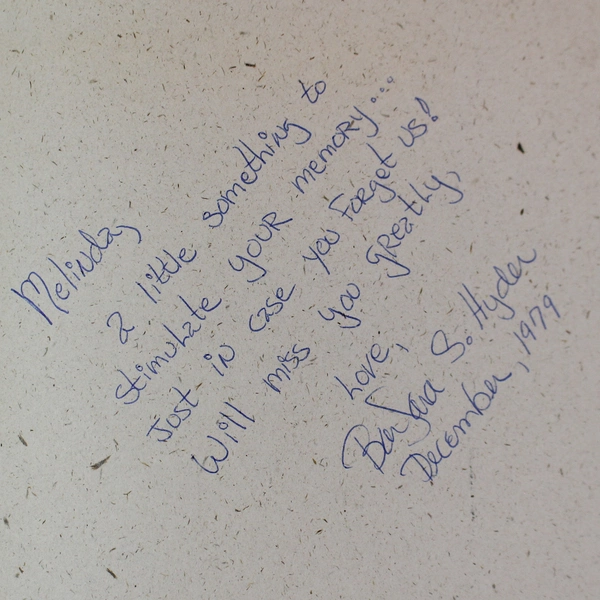 Melinda,
a little something to
stimulate your memory...
Just in case you forget us!
Will miss you greatly,
Love,
Barbara S. Hyder
December, 1979